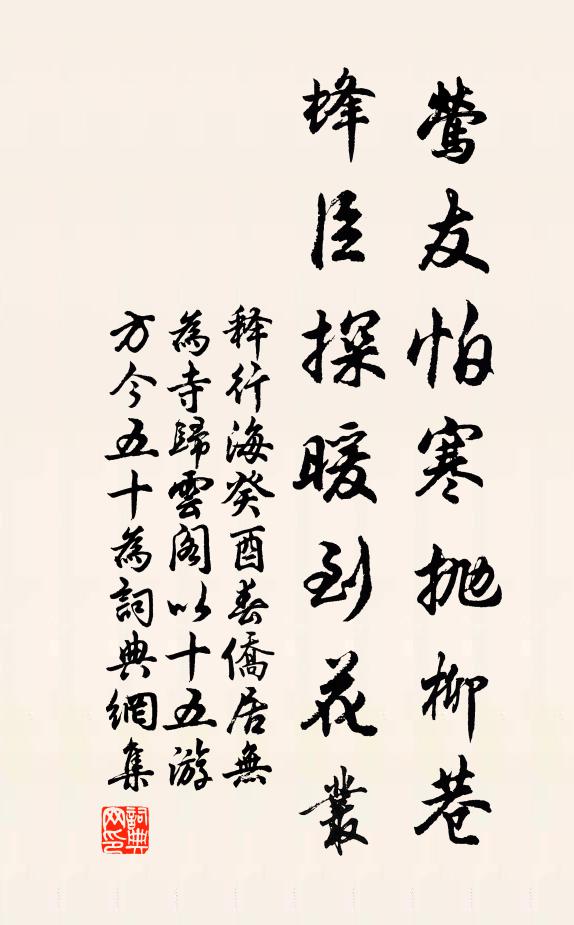 鶯友怕寒抛柳巷
蜂臣探暖到花叢
释行海癸酉春僑居無
為寺歸雲閣以十五游
方今五十為詞典網集
詞典
网印